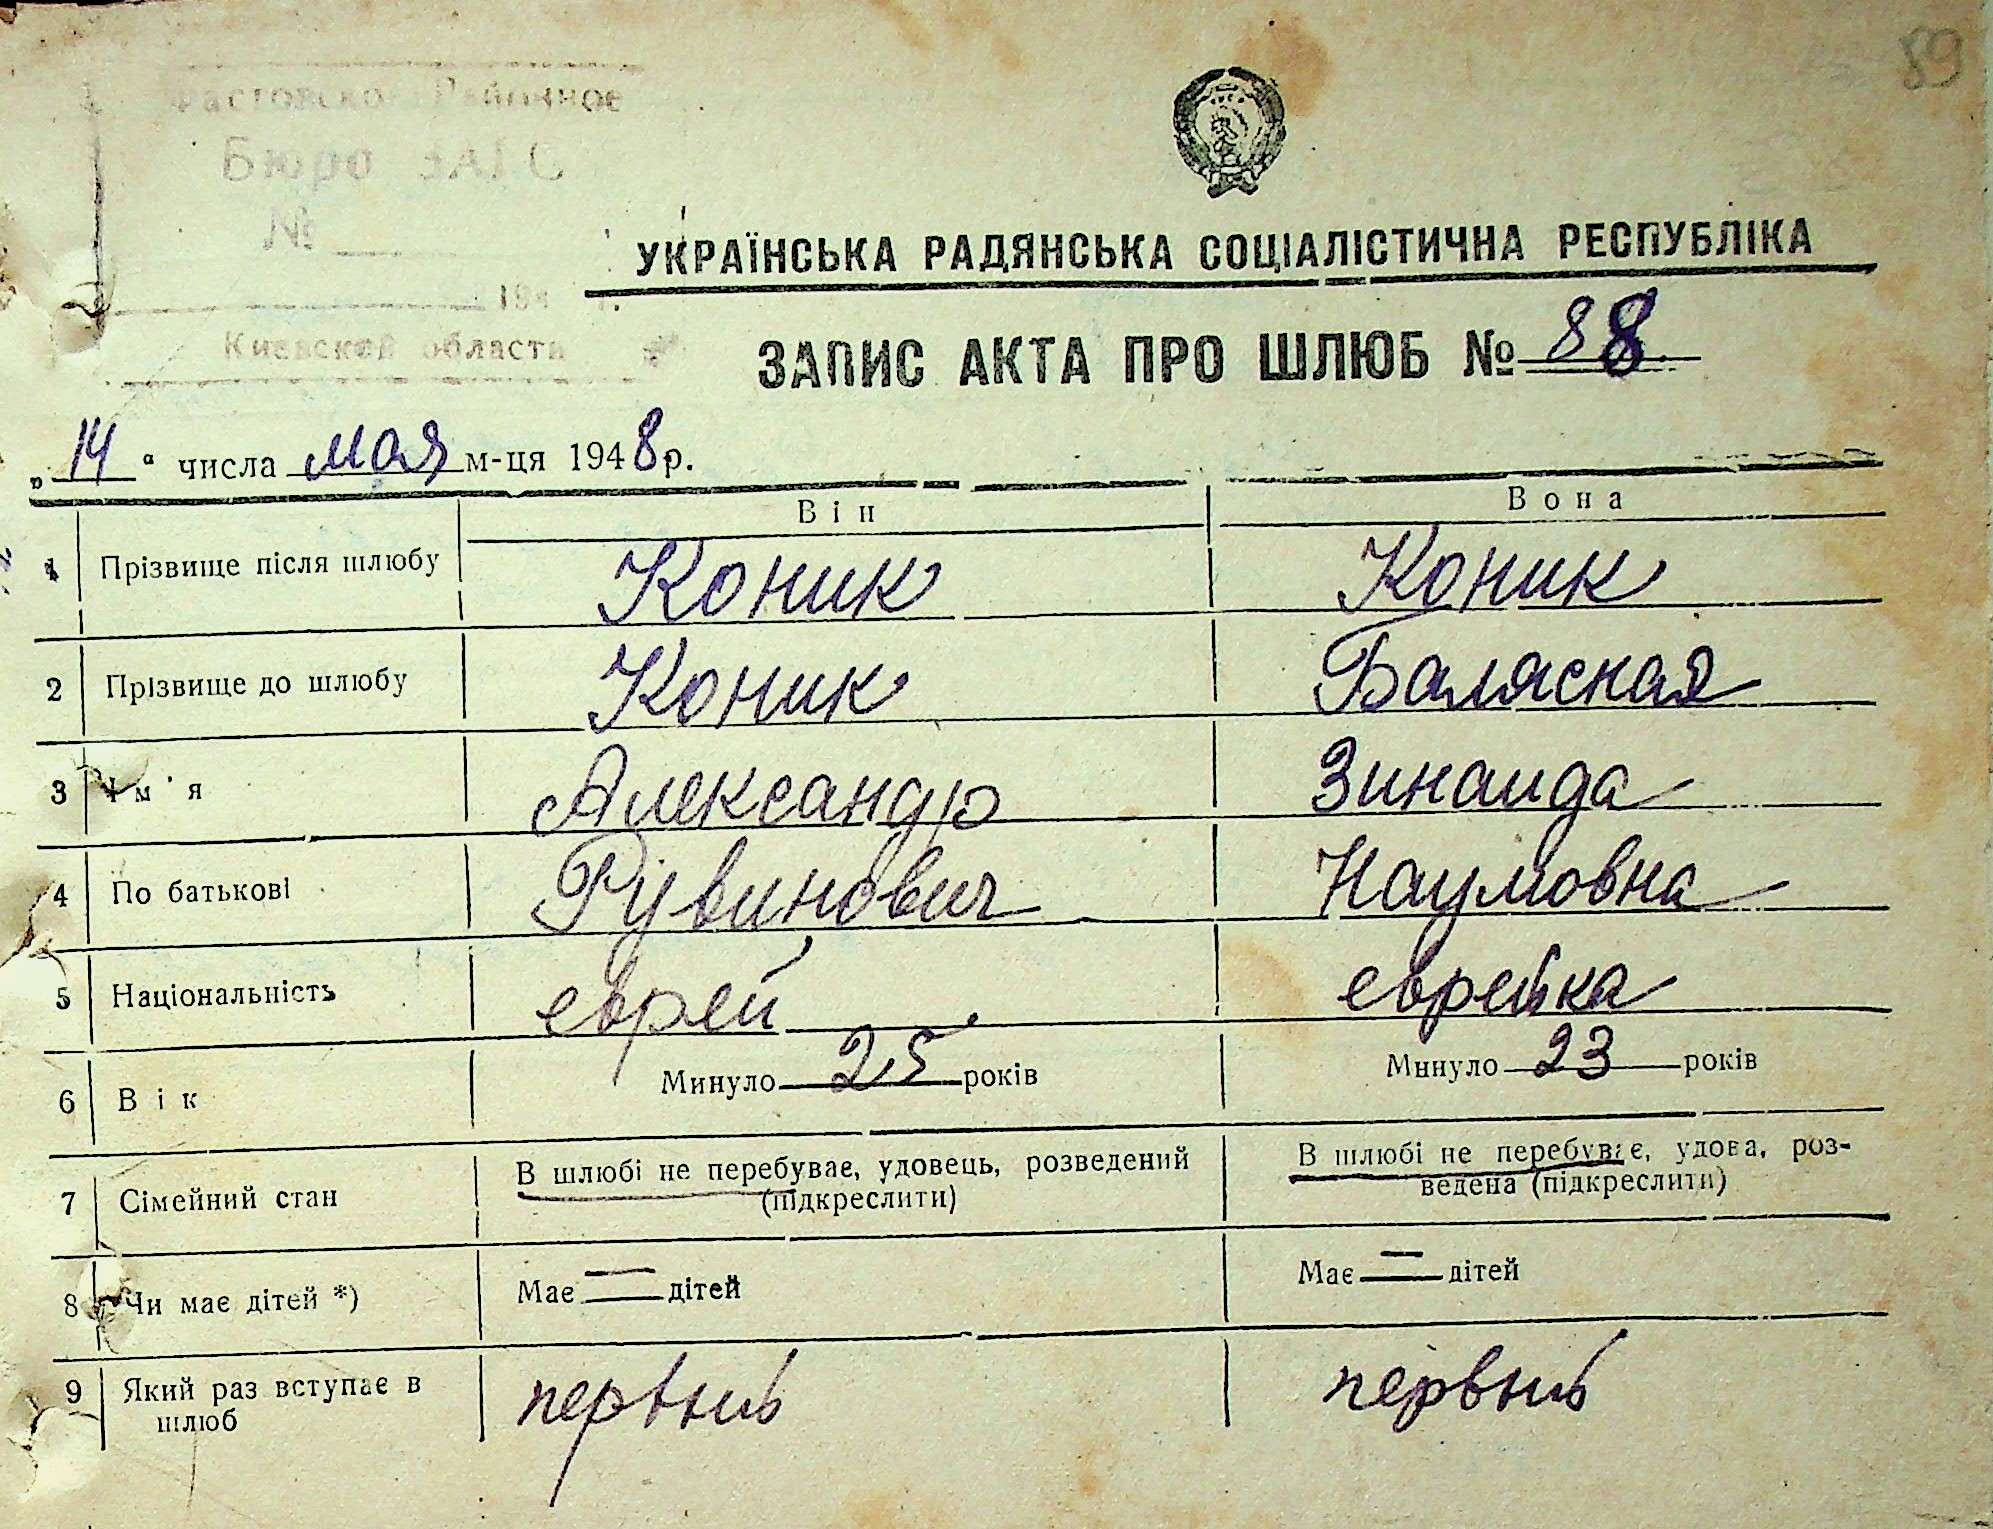 89
Фастовское Районное
Бюро ЗАГС
№
194 г.
Киевской области
УКРАЇНСЬКА РАДЯНСЬКА СОЦІАЛІСТИЧНА РЕСПУБЛІКА
ЗАПИС АКТА ПРО ШЛЮБ № 88
„14“ числа мая м-ця 1948 р.
Він Вона
1 Прізвище після шлюбу Коник Коник
2 Прізвище до шлюбу Коник Баляская
3 Ім'я Александр Зинаида
4 По батькові Рувинович Наумовна
5 Національність еврей еврейка
6 Вік Минуло 25 років Минуло 23 років
7 Сімейний стан В шлюбі не перебуває, удовець, розведений (підкреслити) В шлюбі не перебуває, удова, роз-
ведена (підкреслити)
8 Чи має дітей *) Має — дітей Має — дітей
9 Який раз вступає в шлюб первый первый